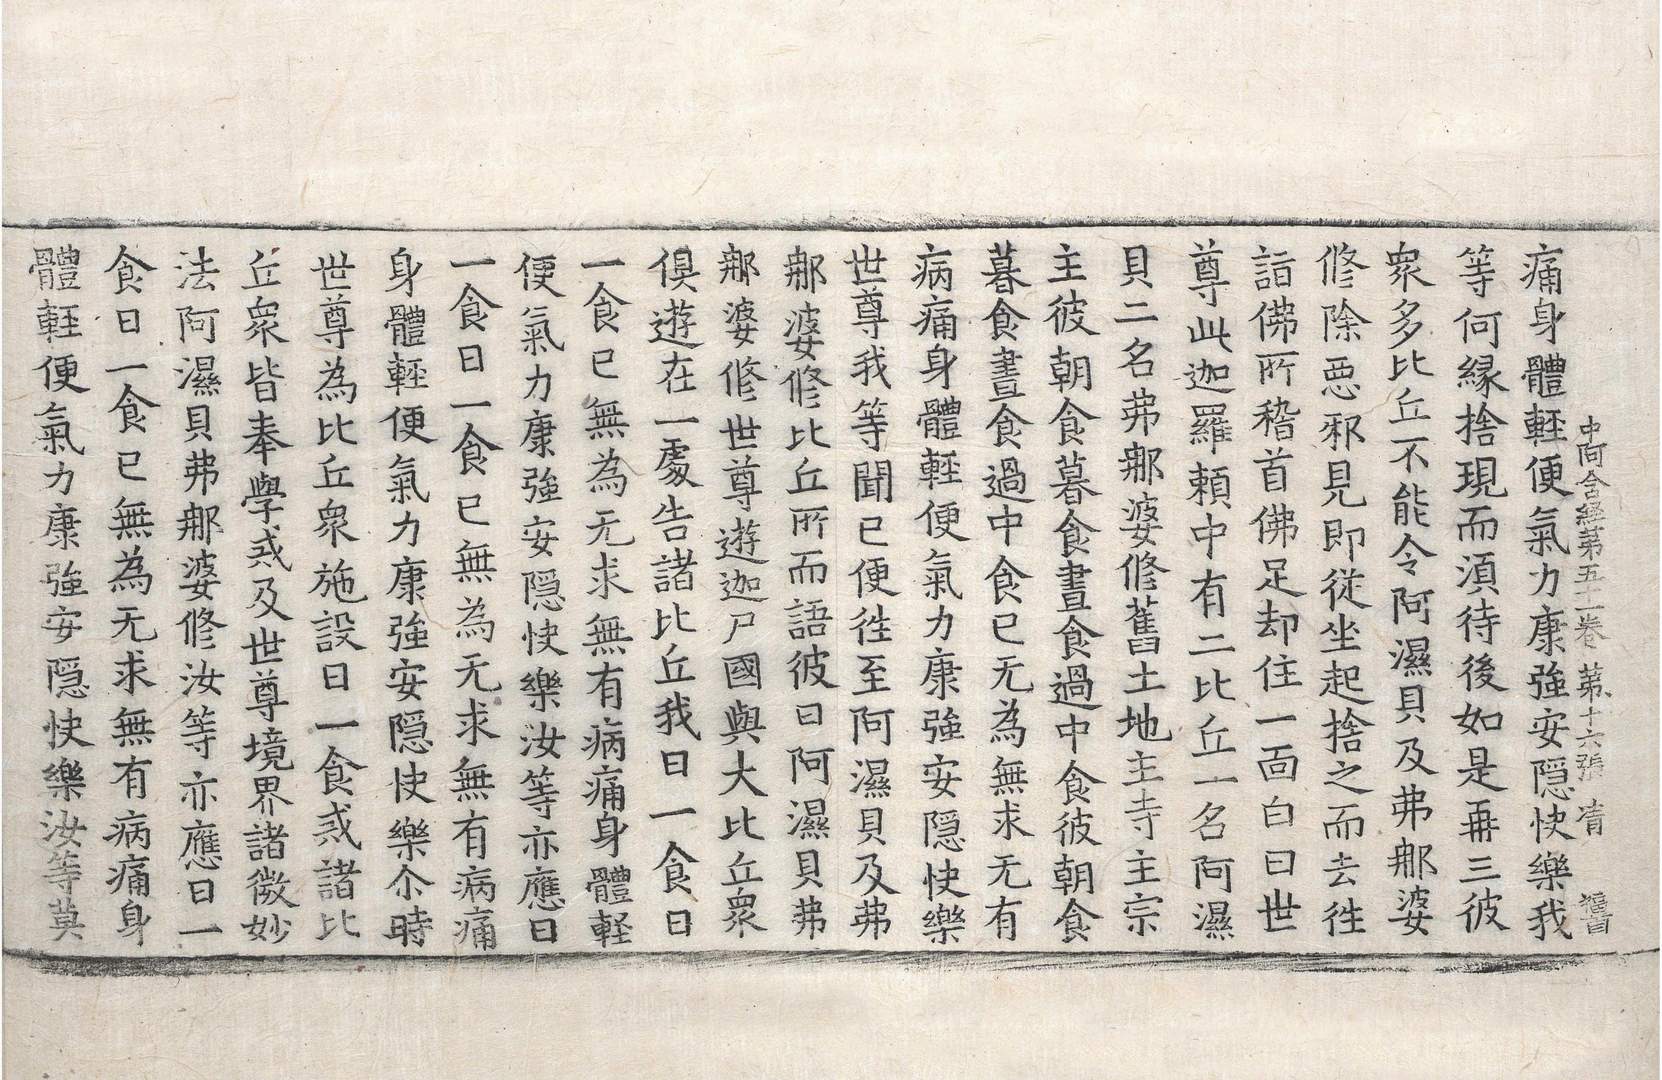 中阿含經第五十一卷 第十六張
痛身體輕便氣力康強安隱快樂我
等何縁捨現而須待後如是再三彼
衆多比丘不能令阿濕貝及弗那婆
修除惡邪見即從坐起捨之而去往
詣佛所稽首佛足却住一面白曰世
尊此迦羅賴中有二比丘一名阿濕
貝二名弗那婆修舊土地主寺主宗
主彼朝食暮食晝食過中食彼朝食
暮食晝食過中食已无為無求无有
病痛身體輕便氣力康強安隱快樂
世尊我等聞已便往至阿濕貝及弗
那婆修比丘所而語彼曰阿濕貝弗
那婆修世尊遊迦尸國與大比丘衆
俱遊在一處告諸比丘我日一食日
一食已無為无求無有病痛身體輕
便氣力康強安隱快樂汝等亦應日
一食日一食已無為无求無有病痛
身體輕便氣力康強安隱快樂尒時
世尊為比丘衆施設日一食戒諸比
丘衆皆奉學戒及世尊境界諸微妙
法阿濕貝弗那婆修汝等亦應日一
食日一食已無為无求無有病痛身
體輕便氣力康強安隱快樂汝等莫